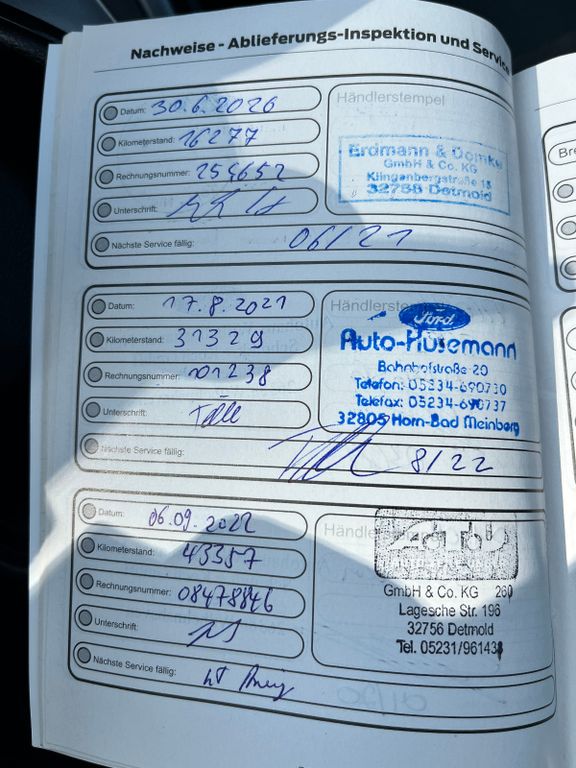 Nachweise - Ablieferungs-Inspektion und Service
Datum: 30.6.2020
Kilometerstand: 16277
Rechnungsnummer: 254652
Unterschrift:
Nächste Service fällig: 06/21
Händlerstempel
Erdmann & Domke
GmbH & Co. KG
Klingenbergstraße 15
32758 Detmold
Datum: 17.8.2021
Kilometerstand: 31329
Rechnungsnummer: 101238
Unterschrift:
Nächste Service fällig: 8/22
Händlerstempel
Ford
Auto-Husemann
Bahnhofstraße 20
Telefon: 05234-690730
Telefax: 05234-690737
32805 Horn-Bad Meinberg
Datum: 06.09.2022
Kilometerstand: 43357
Rechnungsnummer: 08478846
Unterschrift:
Nächste Service fällig: lt
Händ
GmbH & Co. KG 260
Lagesche Str. 196
32756 Detmold
Tel. 05231/961438
Bre